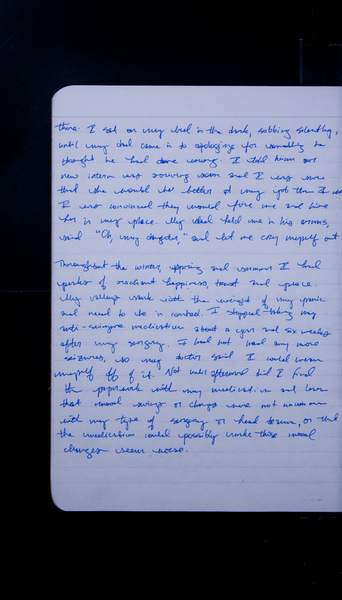 there. I sat on my bed in the dark, sobbing silently,
until my dad came in to apologize for something he
thought he had done wrong. I told him our
new intern was arriving soon and I was sure
that she would be better at my job than I
I was convinced they would fire me and hire
her in my place. My dad held me in his arms,
said "Oh, my daughter," and let me cry myself out
Throughout the winter, spring and summer I had
peaks of radiant happiness, trust and peace.
My valleys with the weight of my panic
and need to be in control. I stopped taking my
anti-seizure medication about a year and six weeks
after my surgery. I had not had any more
seizures, so my doctor said I could wean
myself off of it. Not until afterward did I find
the paperwork with my medication and learn
that mood swings or changes were not uncommon
with my type of surgery or head trauma, or that
the medication could possibly make those mood
changes seem worse.